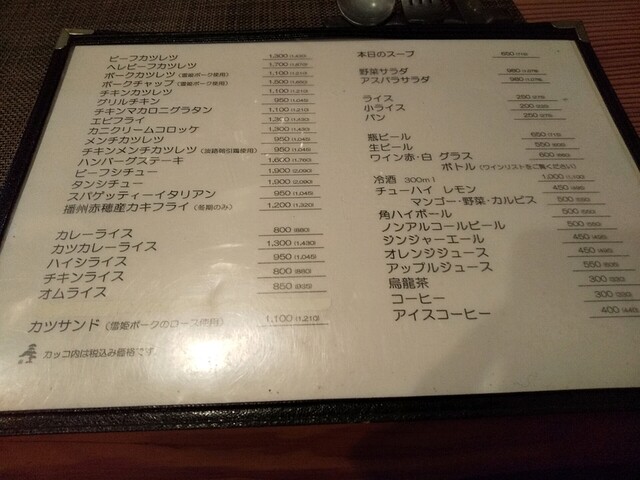 ビーフカツレツ 1,500
ヘレビーフカツレツ 1,700 (1,870)
ポークカツレツ (雪姫ポーク使用) 1,100 (1,210)
ポークチャップ (雪姫ポーク使用)
チキンカツレツ 1,100 (1,210)
グリルチキン 950 (1,045)
チキンマカロニグラタン 1,100 (1,210)
エビフライ 1,300 (1,430)
カニクリームコロッケ 1,300 (1,430)
メンチカツレツ 950 (1,045)
チキンメンチカツレツ 950 (1,045)
ハンバーグステーキ 1,600 (1,760)
ビーフシチュー 1,900 (2,090)
タンシチュー 1,900 (2,090)
スパゲッティーイタリアン 950 (1,045)
播州赤穂産カキフライ (冬期のみ) 1,200 (1,320)
カレーライス 800 (880)
カツカレーライス 1,300 (1,430)
ハイシライス 950 (1,045)
チキンライス 800 (880)
オムライス 850 (935)
カツサンド (雪姫ポークのロース使用) 1,100 (1,210)
カッコ内は税込み価格です。
本日のスープ 650 (715)
野菜サラダ 980 (1,078)
アスパラサラダ 980 (1,078)
ライス 250 (275)
小ライス 200 (220)
パン 250 (275)
瓶ビール 650 (715)
生ビール 550 (605)
ワイン赤・白 グラス 600 (660)
ボトル (ワインリストをご覧ください)
冷酒 300ml 1,000 (1,100)
チューハイ レモン 450 (495)
マンゴー・野菜・カルピス 500 (550)
角ハイボール 500 (550)
ノンアルコールビール 500 (550)
ジンジャーエール 450 (495)
オレンジジュース 450 (495)
アップルジュース 550 (605)
烏龍茶 300 (330)
コーヒー 300 (330)
アイスコーヒー 400 (440)